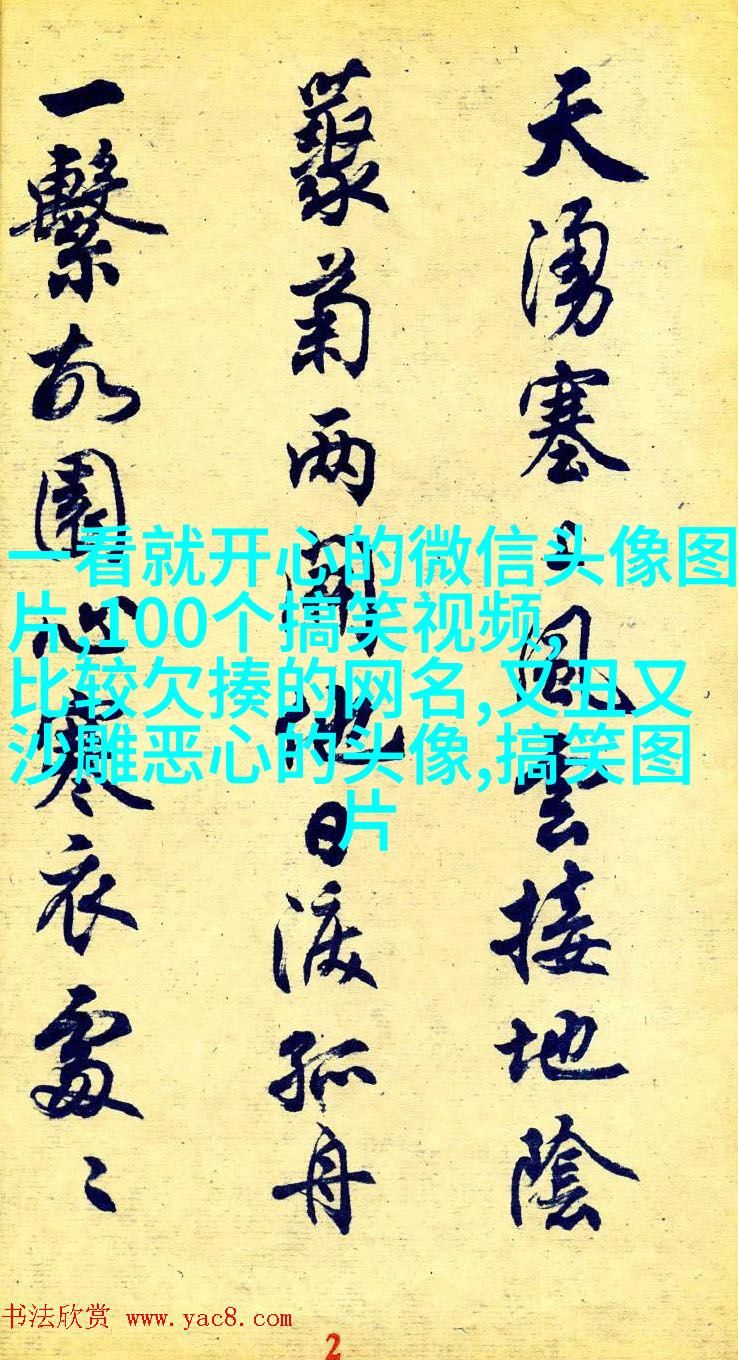 天湧塞上風雲接地陰
叢菊两開他日淚孤舟
一繫故園心寒衣處〻
一看就开心的微信头像图
片,100个搞笑视频,
比较欠揍的网名,又丑又
沙雕恶心的头像,搞笑图
片
书法欣赏 www.yac8.com
2